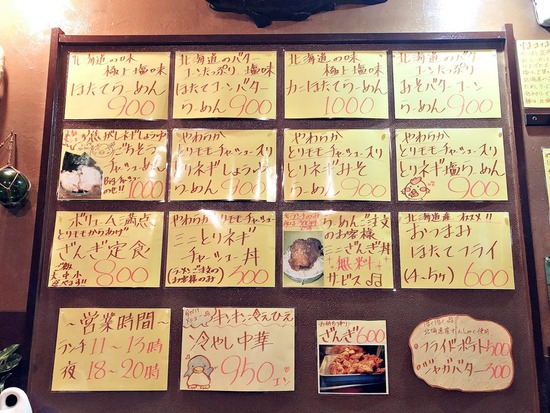 北海道の味
極上塩味
ほたてらーめん
900
北海道のバター
コーンたっぷり 塩味
ほたてコーンバター
らーめん 900
北海道の味
極上塩味
カニほたてらーめん
1000
北海道のバター
コーンたっぷり
みそバターコーン
らーめん 900
チャーシュー
らーめん 1000
やわらか
とりモモチャーシュー入り
とりネギしょうゆ
らーめん 900
やわらか
とりモモチャーシュー入り
とりネギみそ
らーめん 900
やわらか
とりモモチャーシュー入り
とりネギ塩らーめん
900
ボリューム満点
とりモモからあげ
ざんぎ定食
ご飯
大中小
800
やわらかとりモモチャーシュー
ミニとりネギ
チャーシュー丼
(らーめんご注文の
お客様のみ) 300
らーめんご注文
のお客様
ミニざんぎ丼
無料
サービス
北海道産
おつまみ
ほたてフライ
(4~5ケ) 600
~営業時間~
ランチ 11~15時
夜 18~20時
キンキン冷えひえ
冷やし中華
950エン
ざんぎ600
フライドポテト 500
ジャガバター 300